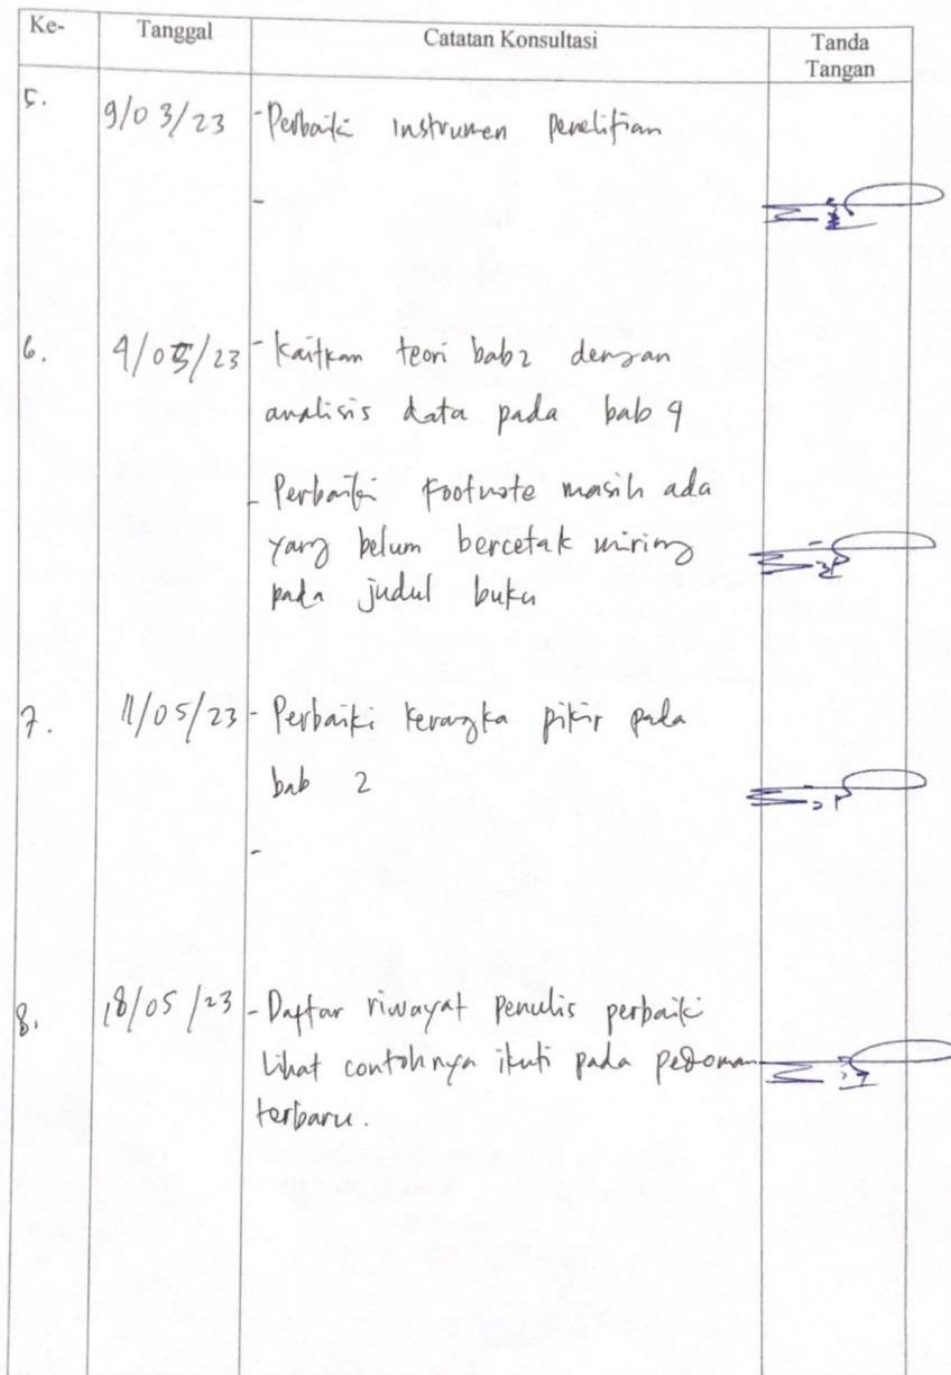 Ke- Tanggal Catatan Konsultasi Tanda
Tangan
5. 9/03/23 - Perbaiki instrumen penelitian
-
6. 4/05/23 - Kaitkan teori bab 2 dengan
analisis data pada bab 4
- Perbaiki Footnote masih ada
yang belum bercetak miring
pada judul buku
7. 11/05/23 - Perbaiki kerangka pikir pada
bab 2
-
8. 18/05/23 - Daftar riwayat penulis perbaiki
Lihat contohnya ikuti pada pedoman
terbaru.